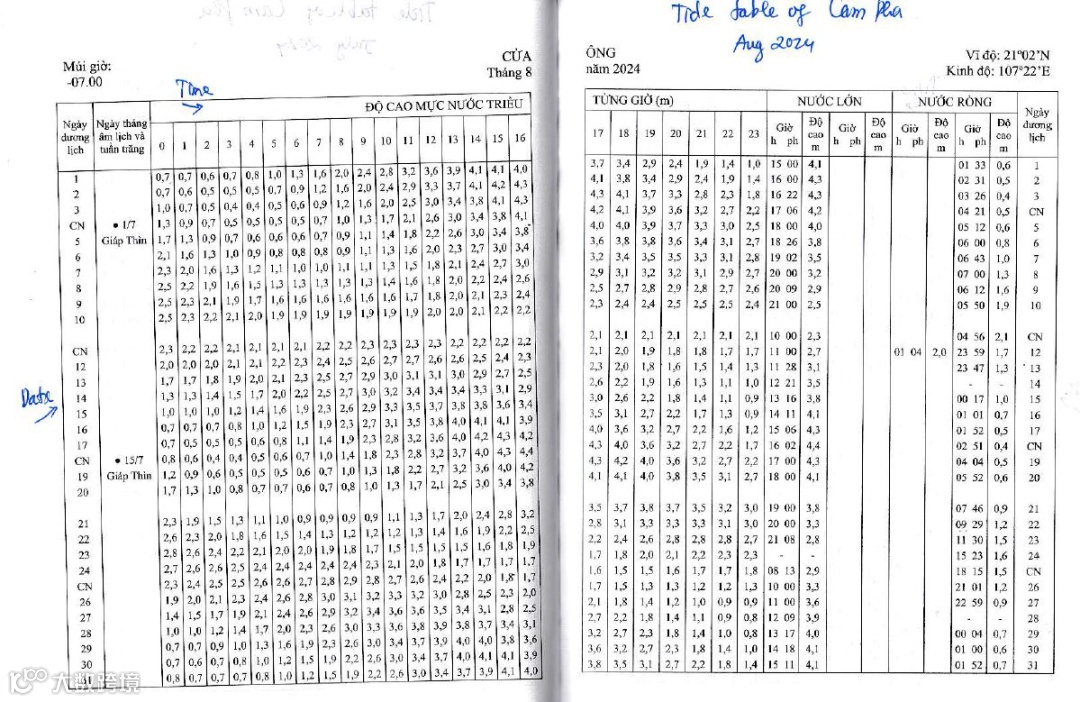 Tide table of Cam Pha
Aug 2024
Múi giờ:
-07.00
CỬA
Tháng 8
Time
ĐỘ CAO MỰC NƯỚC TRIỀU
Ngày dương lịch Ngày tháng âm lịch và tuần trăng 0 1 2 3 4 5 6 7 8 9 10 11 12 13 14 15 16
1 0,7 0,7 0,6 0,7 0,8 1,0 1,3 1,6 2,0 2,4 2,8 3,2 3,6 3,9 4,1 4,1 4,0
2 0,7 0,6 0,5 0,5 0,5 0,7 0,9 1,2 1,6 2,0 2,4 2,9 3,3 3,7 4,1 4,2 4,3
3 1,0 0,7 0,5 0,4 0,4 0,5 0,6 0,9 1,2 1,6 2,0 2,5 3,0 3,4 3,8 4,1 4,3
CN ● 1/7 1,3 0,9 0,7 0,5 0,5 0,5 0,5 0,7 1,0 1,3 1,7 2,1 2,6 3,0 3,4 3,8 4,1
5 Giáp Thìn 1,7 1,3 0,9 0,7 0,6 0,6 0,6 0,7 0,9 1,1 1,4 1,8 2,2 2,6 3,0 3,4 3,8
6 2,1 1,6 1,3 1,0 0,9 0,8 0,8 0,8 0,9 1,1 1,3 1,6 2,0 2,3 2,7 3,0 3,4
7 2,3 2,0 1,6 1,3 1,2 1,1 1,0 1,0 1,1 1,1 1,3 1,5 1,8 2,1 2,4 2,7 3,0
8 2,5 2,2 1,9 1,6 1,5 1,3 1,3 1,3 1,3 1,3 1,4 1,6 1,8 2,0 2,2 2,4 2,6
9 2,5 2,3 2,1 1,9 1,7 1,6 1,6 1,6 1,6 1,6 1,6 1,7 1,8 2,0 2,1 2,3 2,4
10 2,5 2,3 2,2 2,1 2,0 1,9 1,9 1,9 1,9 1,9 1,9 1,9 2,0 2,0 2,1 2,2 2,2
CN 2,3 2,2 2,2 2,1 2,1 2,1 2,1 2,2 2,2 2,3 2,3 2,3 2,3 2,2 2,2 2,2 2,2
12 2,0 2,0 2,0 2,1 2,1 2,2 2,3 2,4 2,5 2,6 2,7 2,7 2,6 2,6 2,5 2,4 2,3
13 1,7 1,7 1,8 1,9 2,0 2,1 2,3 2,5 2,7 2,9 3,0 3,1 3,1 3,0 2,9 2,7 2,5
14 1,3 1,3 1,4 1,5 1,7 2,0 2,2 2,5 2,7 3,0 3,2 3,4 3,4 3,4 3,3 3,1 2,9
Date
15 1,0 1,0 1,0 1,2 1,4 1,6 1,9 2,3 2,6 2,9 3,3 3,5 3,7 3,8 3,8 3,6 3,4
16 0,7 0,7 0,7 0,8 1,0 1,2 1,5 1,9 2,3 2,7 3,1 3,5 3,8 4,0 4,1 4,1 3,9
17 0,7 0,5 0,5 0,5 0,6 0,8 1,1 1,4 1,9 2,3 2,8 3,2 3,6 4,0 4,2 4,3 4,2
CN ● 15/7 0,8 0,6 0,4 0,4 0,5 0,6 0,7 1,0 1,4 1,8 2,3 2,8 3,2 3,7 4,0 4,3 4,4
19 Giáp Thìn 1,2 0,9 0,6 0,5 0,5 0,5 0,6 0,7 1,0 1,3 1,8 2,2 2,7 3,2 3,6 4,0 4,2
20 1,7 1,3 1,0 0,8 0,7 0,7 0,6 0,7 0,8 1,0 1,3 1,7 2,1 2,5 3,0 3,4 3,8
21 2,3 1,9 1,5 1,3 1,1 1,0 0,9 0,9 0,9 0,9 1,1 1,3 1,7 2,0 2,4 2,8 3,2
22 2,6 2,3 2,0 1,8 1,6 1,5 1,4 1,3 1,2 1,2 1,2 1,3 1,4 1,6 1,9 2,2 2,5
23 2,8 2,6 2,4 2,2 2,1 2,0 2,0 1,9 1,8 1,7 1,5 1,5 1,5 1,5 1,6 1,8 1,9
24 2,7 2,6 2,6 2,5 2,4 2,4 2,4 2,4 2,4 2,3 2,1 2,0 1,8 1,7 1,7 1,7 1,7
CN 2,3 2,4 2,5 2,5 2,6 2,6 2,7 2,8 2,9 2,8 2,7 2,6 2,4 2,2 2,0 1,8 1,7
26 1,9 2,0 2,1 2,3 2,4 2,6 2,8 3,0 3,1 3,2 3,3 3,2 3,0 2,8 2,5 2,3 2,0
27 1,4 1,5 1,7 1,9 2,1 2,4 2,6 2,9 3,2 3,4 3,6 3,6 3,5 3,4 3,1 2,8 2,5
28 1,0 1,0 1,2 1,4 1,7 2,0 2,3 2,6 3,0 3,3 3,6 3,8 3,9 3,8 3,7 3,4 3,1
29 0,7 0,7 0,9 1,0 1,3 1,6 1,9 2,3 2,6 3,0 3,4 3,7 3,9 4,0 4,0 3,8 3,6
30 0,7 0,6 0,7 0,8 1,0 1,2 1,5 1,9 2,2 2,6 3,0 3,4 3,7 4,0 4,1 4,1 3,9
0,8 0,7 0,7 0,7 0,8 1,0 1,2 1,5 1,9 2,2 2,6 3,0 3,4 3,7 3,9 4,1 4,0
大数跨境
ÔNG
năm 2024
Vĩ độ: 21°02'N
Kinh độ: 107°22'E
TỪNG GIỜ (m) NƯỚC LỚN NƯỚC RÒNG Ngày dương lịch
17 18 19 20 21 22 23 Giờ h ph Độ cao m Giờ h ph Độ cao m Giờ h ph Độ cao m Giờ h ph Độ cao m
3,7 3,4 2,9 2,4 1,9 1,4 1,0 15 00 4,1 01 33 0,6 1
4,1 3,8 3,4 2,9 2,4 1,9 1,4 16 00 4,3 02 31 0,5 2
4,3 4,1 3,7 3,3 2,8 2,3 1,8 16 22 4,3 03 26 0,4 3
4,2 4,1 3,9 3,6 3,2 2,7 2,2 17 06 4,2 04 21 0,5 CN
4,0 4,0 3,9 3,7 3,3 3,0 2,5 18 00 4,0 05 12 0,6 5
3,6 3,8 3,8 3,6 3,4 3,1 2,7 18 26 3,8 06 00 0,8 6
3,2 3,4 3,5 3,5 3,3 3,1 2,8 19 02 3,5 06 43 1,0 7
2,9 3,1 3,2 3,2 3,1 2,9 2,7 20 00 3,2 07 00 1,3 8
2,5 2,7 2,8 2,9 2,8 2,7 2,6 20 09 2,9 06 12 1,6 9
2,3 2,4 2,4 2,5 2,5 2,5 2,4 21 00 2,5 05 50 1,9 10
2,1 2,1 2,1 2,1 2,1 2,1 2,1 10 00 2,3 04 56 2,1 CN
2,1 2,0 1,9 1,8 1,8 1,7 1,7 11 00 2,7 01 04 2,0 23 59 1,7 12
2,3 2,0 1,8 1,6 1,5 1,4 1,3 11 28 3,1 23 47 1,3 13
2,6 2,2 1,9 1,6 1,3 1,1 1,0 12 21 3,5 - - 14
3,0 2,6 2,2 1,8 1,4 1,1 0,9 13 16 3,8 00 17 1,0 15
3,5 3,1 2,7 2,2 1,7 1,3 0,9 14 11 4,1 01 01 0,7 16
4,0 3,6 3,2 2,7 2,2 1,6 1,2 15 06 4,3 01 52 0,5 17
4,3 4,0 3,6 3,2 2,7 2,2 1,7 16 02 4,4 02 51 0,4 CN
4,3 4,2 4,0 3,6 3,2 2,7 2,2 17 00 4,3 04 04 0,5 19
4,1 4,1 4,0 3,8 3,5 3,1 2,7 18 00 4,1 05 52 0,6 20
3,5 3,7 3,8 3,7 3,5 3,2 3,0 19 00 3,8 07 46 0,9 21
2,8 3,1 3,3 3,3 3,3 3,1 3,0 20 00 3,3 09 29 1,2 22
2,2 2,4 2,6 2,8 2,8 2,8 2,7 21 08 2,8 11 30 1,5 23
1,7 1,8 2,0 2,1 2,2 2,3 2,3 - - 15 23 1,6 24
1,6 1,5 1,5 1,6 1,7 1,7 1,8 08 13 2,9 18 15 1,5 CN
1,7 1,5 1,3 1,3 1,2 1,2 1,3 10 00 3,3 21 01 1,2 26
2,1 1,8 1,4 1,2 1,0 0,9 0,9 11 00 3,6 22 59 0,9 27
2,7 2,2 1,8 1,4 1,1 0,9 0,8 12 09 3,9 - - 28
3,2 2,7 2,3 1,8 1,4 1,0 0,8 13 17 4,0 00 04 0,7 29
3,6 3,2 2,7 2,3 1,8 1,4 1,0 14 18 4,1 01 00 0,6 30
3,8 3,5 3,1 2,7 2,2 1,8 1,4 15 11 4,1 01 52 0,7 31